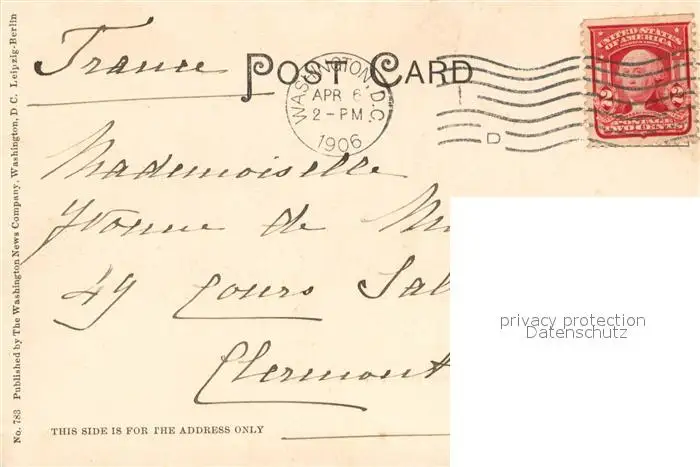 France
POST CARD
WASHINGTON, D.C.
APR 6
2-PM
1906
D
UNITED STATES
OF AMERICA
2 2
POSTAGE
TWO CENTS
Mademoiselle
Yvonne de M
49 Cours Sal
Clermont
privacy protection
Datenschutz
THIS SIDE IS FOR THE ADDRESS ONLY
No. 783 Published by The Washington News Company, Washington, D C. Leipzig-Berlin